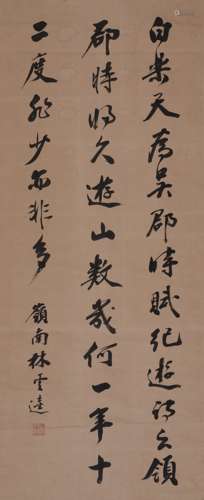 白樂天為吳郡時賦紀遊詩云領
郡時將久遊山數幾何一年十
二度非少亦非多
嶺南林雲逵